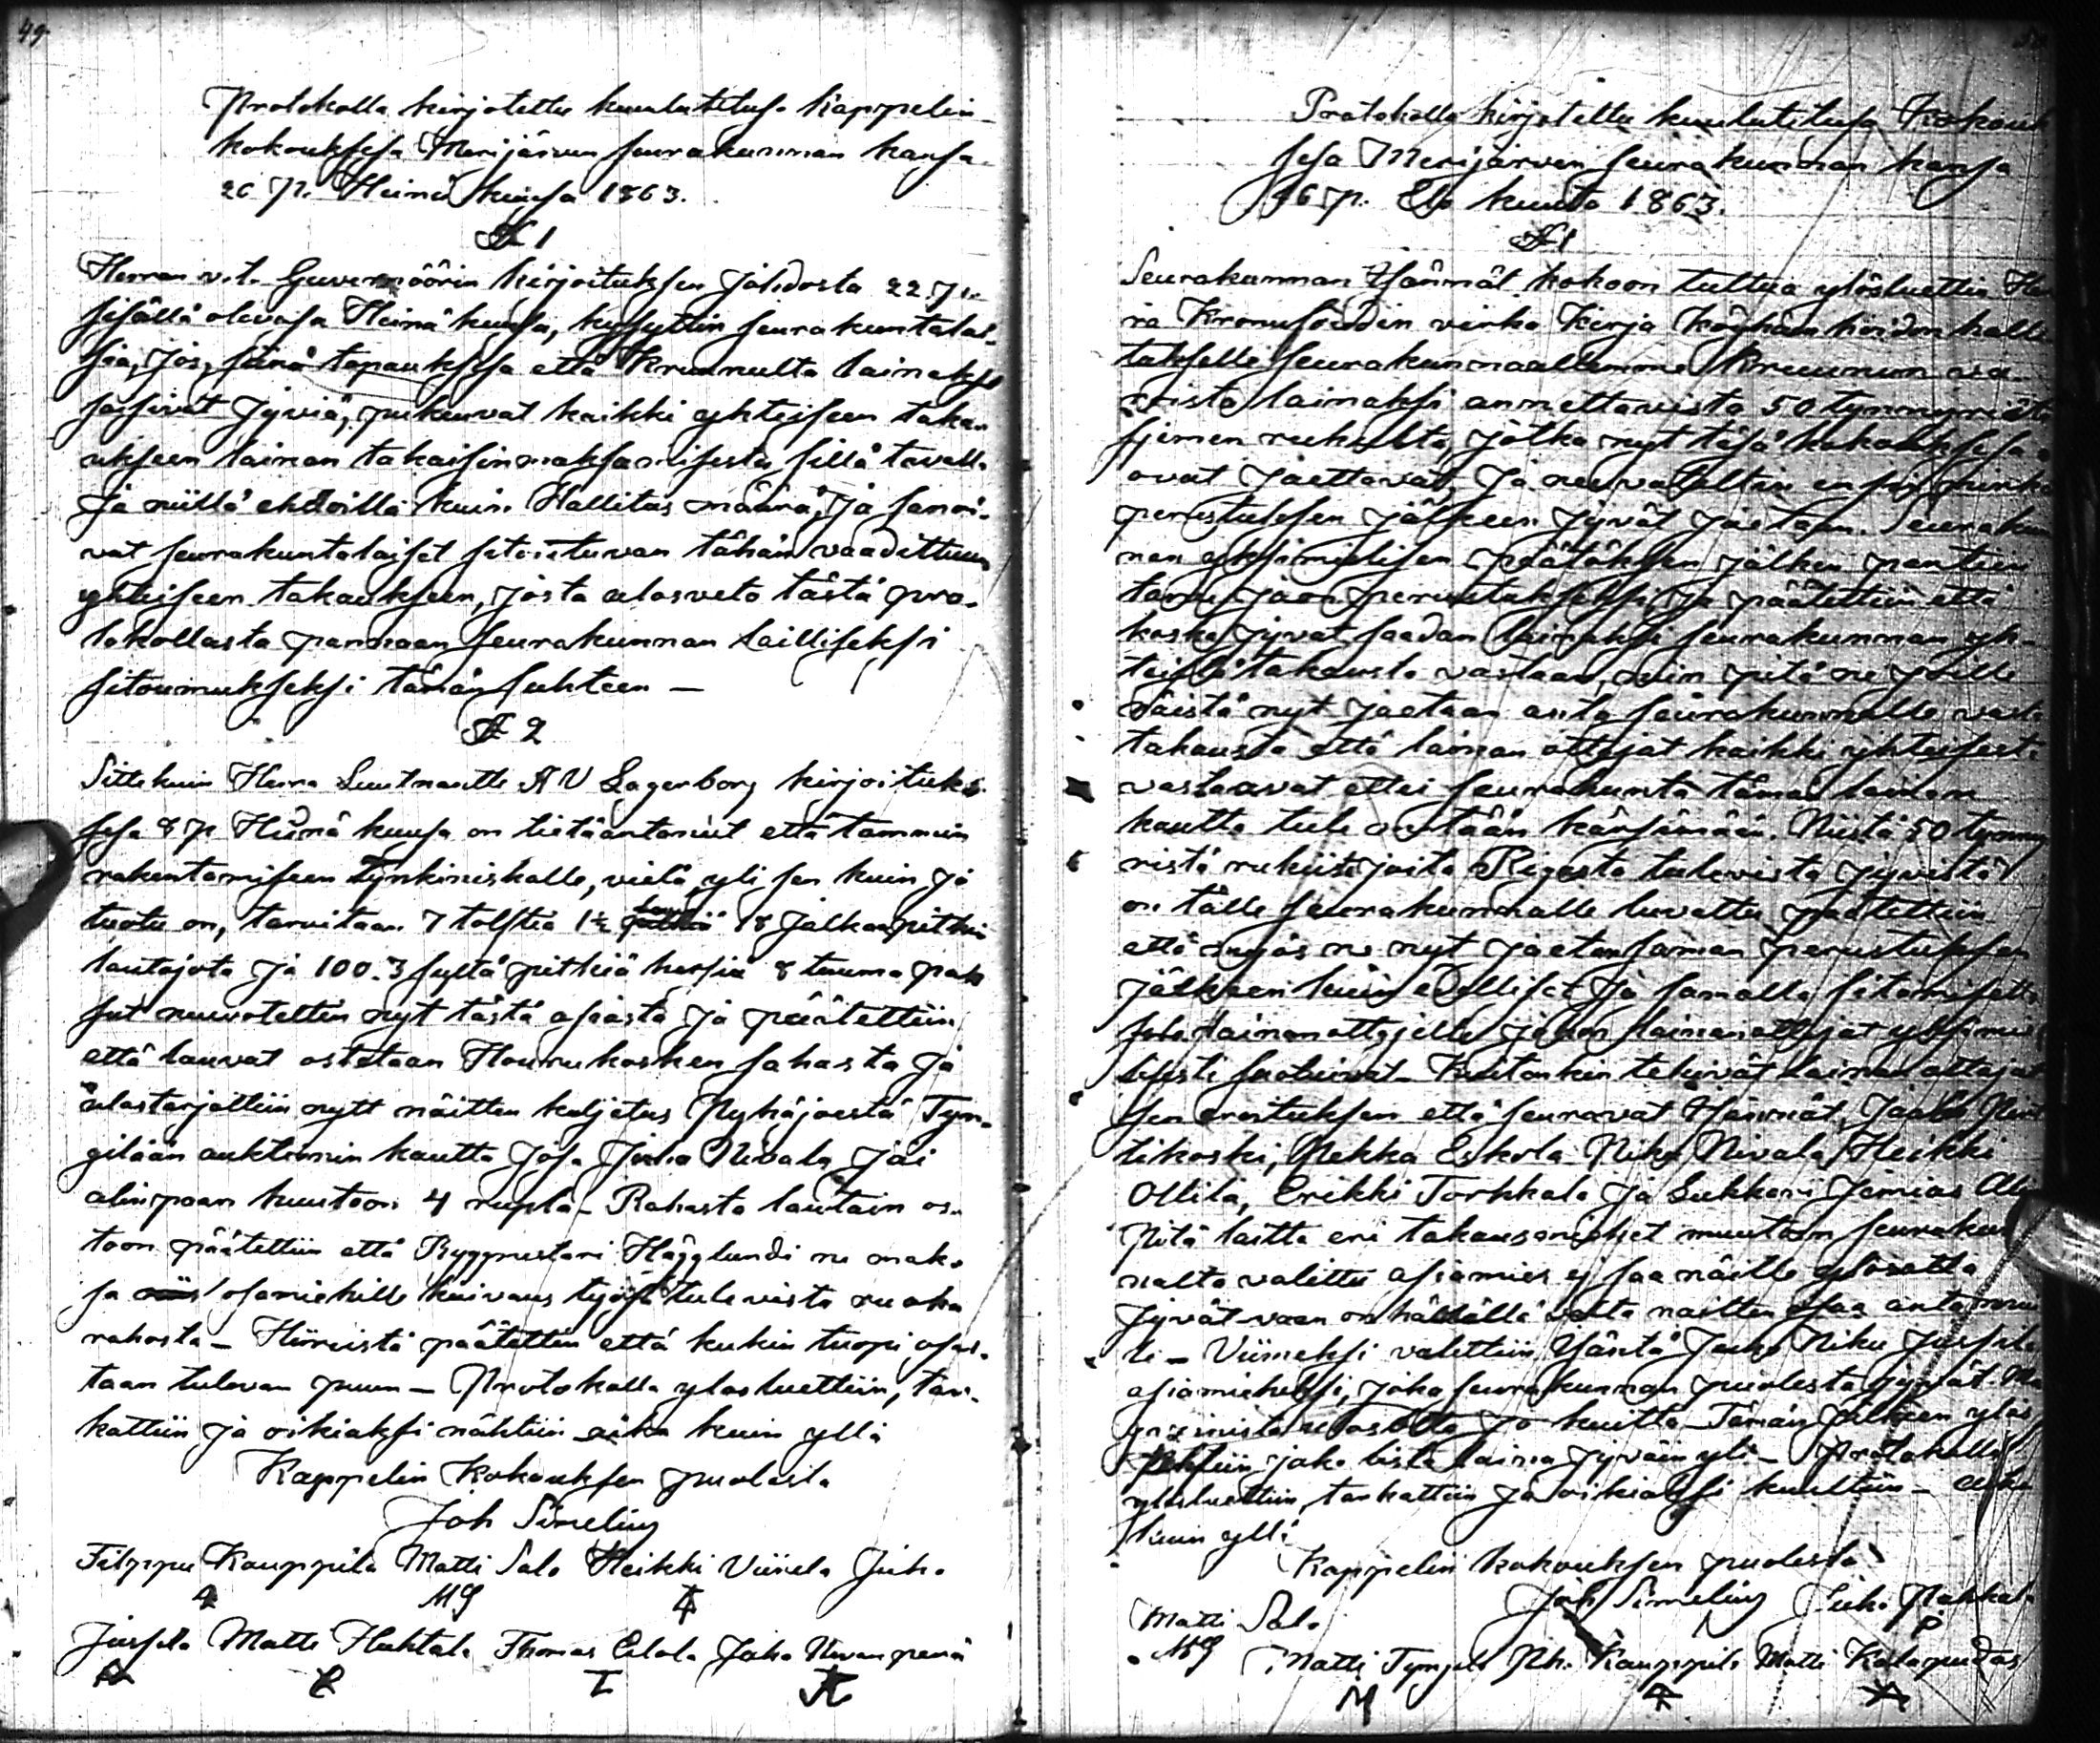 49.
Protokolla kirjotettu kuulutetusa Kappelin
kokouksesa Merijärven seurakunnan kansa
26 p. Heinä kuusa 1863.
§ 1
Herran v.t. Guvernöörin kirjoituksen johdosta 22 p.
sisällä olevasa Heinä kuusa, kysyttiin seurakuntalai-
sia, jos, siinä tapauksesa että Kruunulta lainaksi
saisivat jyviä, pukeuvat kaikki yhteiseen taka-
ukseen lainan takaisinmaksamisesta sillä tavalla
ja niillä ehdoilla kuin Hallitus määrä, ja sanoi-
vat seurakuntalaiset sitoutuvan tähän vaadittuun
yhteiseen takaukseen, josta ulosveto tästä pro-
tokollasta pannaan seurakunnan lailliseksi
sitoumukseksi tämän suhteen —
§ 2
Sittekuin Herra Luutnantti A V Lagerborg kirjoituk-
sesa 8 p Heinä kuusa on tietäantanut että tammin
rakentamiseen Tynkiniskalle, vielä yli sen kuin jo
tuotu on, tarvitaan 7 tolftia 1½ 18 jalkaa pitkiä
lautajota ja 100. 3 syltä pitkiä hirsiä 8 tuuma pak
sut neuvoteltiin nyt tästä asiasta ja päätettiin
että lauvat ostetaan Hourukosken sahasta ja
ulostarjottiin nytt näitten kuljetus Pyhäjoesta Tyn-
gilään auktionin kautta josa Juho Nivala jäi
alinpaan huutoon 4 rupla - Rahasta lautain os-
toon päätettiin että Byggmestari Hägglundi ne mak-
sa osamiehille kaivaus työstä tulevista ruoka
rahasta - Hirreistä päätettiin että kukin tuopi osal-
taan tulevan puun — Protokolla ylosluettiin, tar-
kattiin ja oikiaksi nähtiin aika kuin yllä
Kappelin Kokouksen puolesta
Joh Simelius
Filppu Kauppila Matti Salo Heikki Viirela Juho
MS
Jussila Matti Huhtala Thomas Eilola Juho Nivanperä
Protokolla kirjotettu kuulutetusa Kokouk
sesa Merijärven seurakunnan kansa
16 p. Elo kuuta 1863.
§ 1
Seurakunnan Isännät kokoon tultua ylösluettiin Her
ra Kronufoudin virka Kirja köyhäin hoidon halli
tukselle seurakunnaallemme Kruunun va-
roista lainaksi annettavista 50 tynnyriästä
siemen rukiista, jotka nyt täsä kokouksesa
ovat jaettavat, ja neuvoteltiin ensin minkä
perustuksen jälkeen jyvät jaetaan. Seurakun
nan yksimielisen päätöksen jälken pantiin
jaon perustukseksi ja päätettiin että
koska jyvät saadan lainaksi seurakunnan yh-
teistä takausta vastaan, niin pitä ne joille
näistä nyt jaetaan anta seurakunnalle vasta
takausta että lainan ottajat kaikki yhteisesti
vastaavat ettei seurakunta tämän lainan
kautta tule mitään kärsimään. Niistä 50 tynny
ristä rukiista joita Rigasta tulevista jyvistä
on tälle seurakunnalle luvattu päätettiin
että myös ne nyt jaetan saman perustuksen
jälkeen kuin edelliset ja samalla sitomisella
lainanottajille johon lainanottajat yksimie
lisesti suotuivat - Kuitonkin tekivät lainan ottajat
sen muistuksen että seuraavat Isännät, Jaako Pent
tikoski, Pekka Eskola Niku Nivala Heikki
Ollila, Erikki Torkkala ja Sukkari Jemias Ala
Pitä laitta eri takausmiehet muutoin seurakun
nalta valittu asiamies ej saa näille ylösotta
jyvät vaan on hällällä valta naitten osaa anta muu
le - Viimeksi valittiin Isäntä Juho Niku Jussila
asiamieheksi, joka seurakunnan puolesta jyvät Ma
gasinista ulosotta ja kuitta - Tämän jälkeen ylös
tehtiin jako lista laina jyväin yli - Protokolla
ylösluettiin, tarkattiin ja oikiaksi kuultiin - aika
kuin yllä
Kappelin kokouksen puolesta
Joh Simelius Juho Pakkala
Matti Salo
MS Matti Tyngilä Ph. Kauppila Matti Kalapudas
M